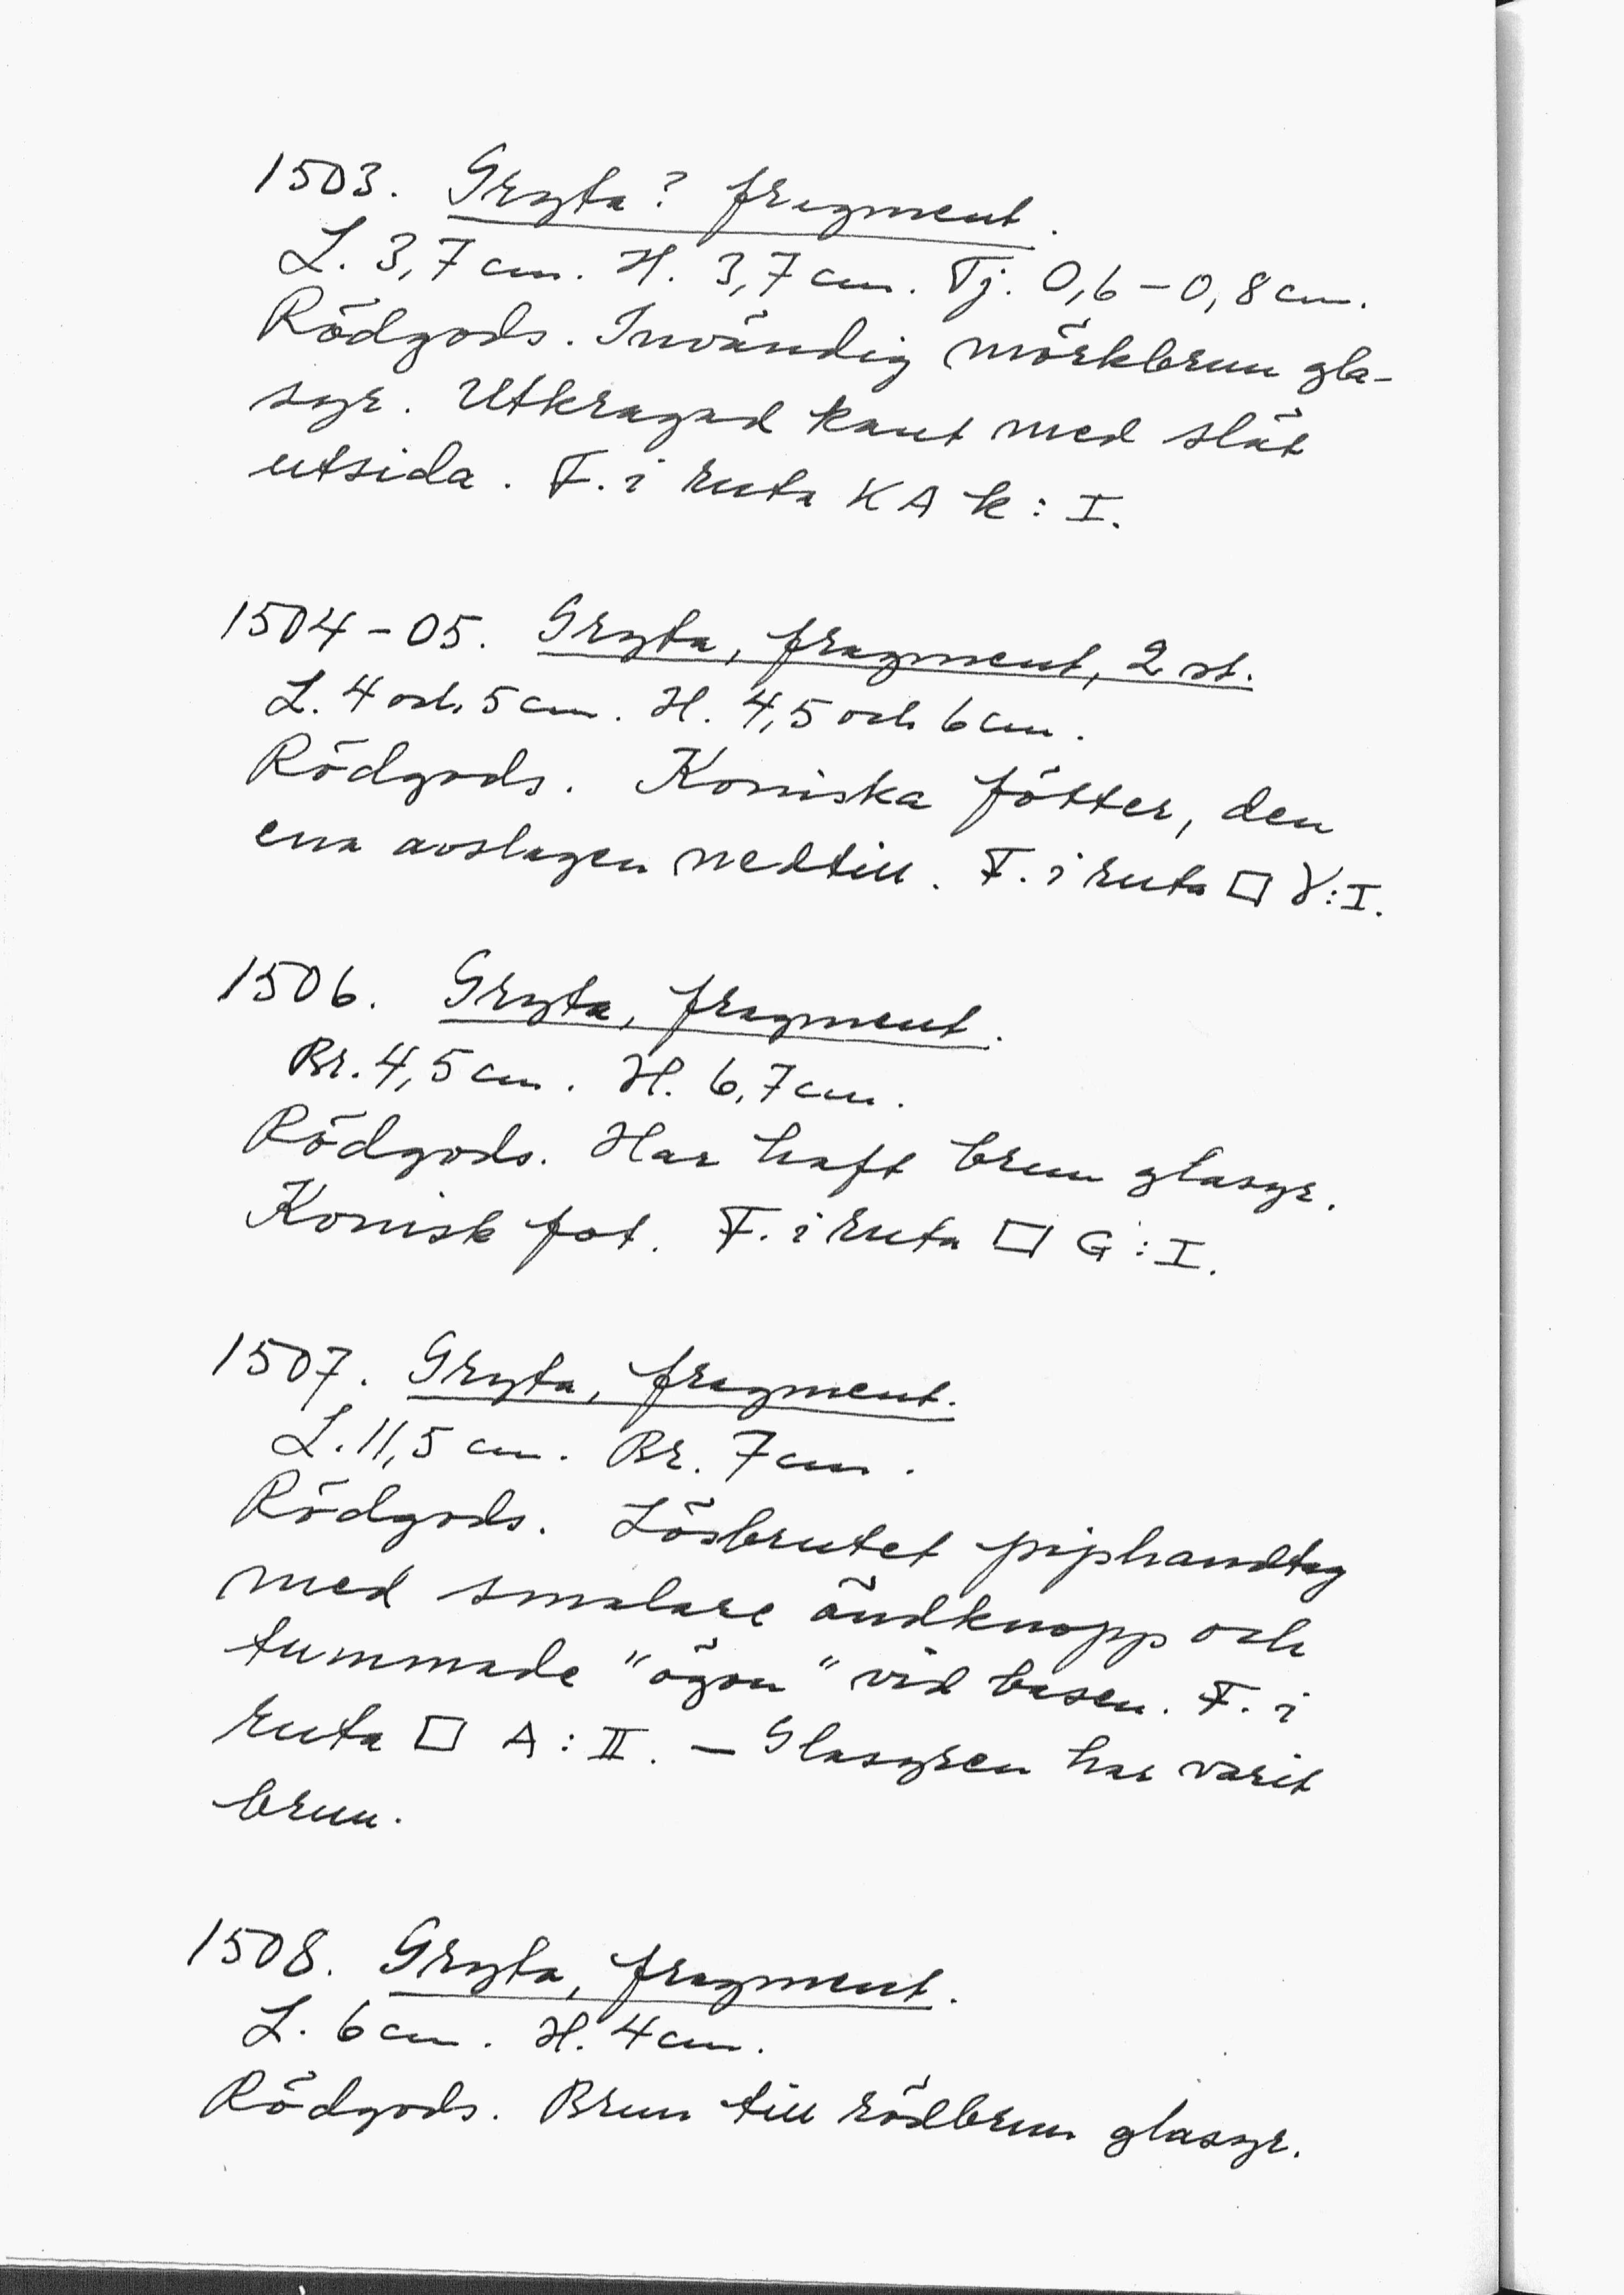 1503. Gryta? fragment.
L. 3,7 cm. H. 3,7 cm. Tj. 0,6 – 0,8 cm.
Rödgods. Invändig mörkbrun gla-
syr. Utkragad kant med slät
utsida. F. i ruta KA k: I.
1504 – 05. Gryta, fragment, 2 st.
L. 4 och 5 cm. H. 4,5 och 6 cm.
Rödgods. Koniska fötter, den
ena avslagen nedtill. F. i ruta □ γ: I.
1506. Gryta, fragment.
Br. 4,5 cm. H. 6,7 cm.
Rödgods. Har haft brun glasyr.
Konisk fot. F. i ruta □ G: I.
1507. Gryta, fragment.
L. 11,5 cm. Br. 7 cm.
Rödgods. Lösbrutet piphandtag
med smalare ändknopp och
tummade "ögon" vid basen. F. i
ruta □ A: II. – Glasyren har varit
brun.
1508. Gryta, fragment.
L. 6 cm. H. 4 cm.
Rödgods. Brun till rödbrun glasyr.